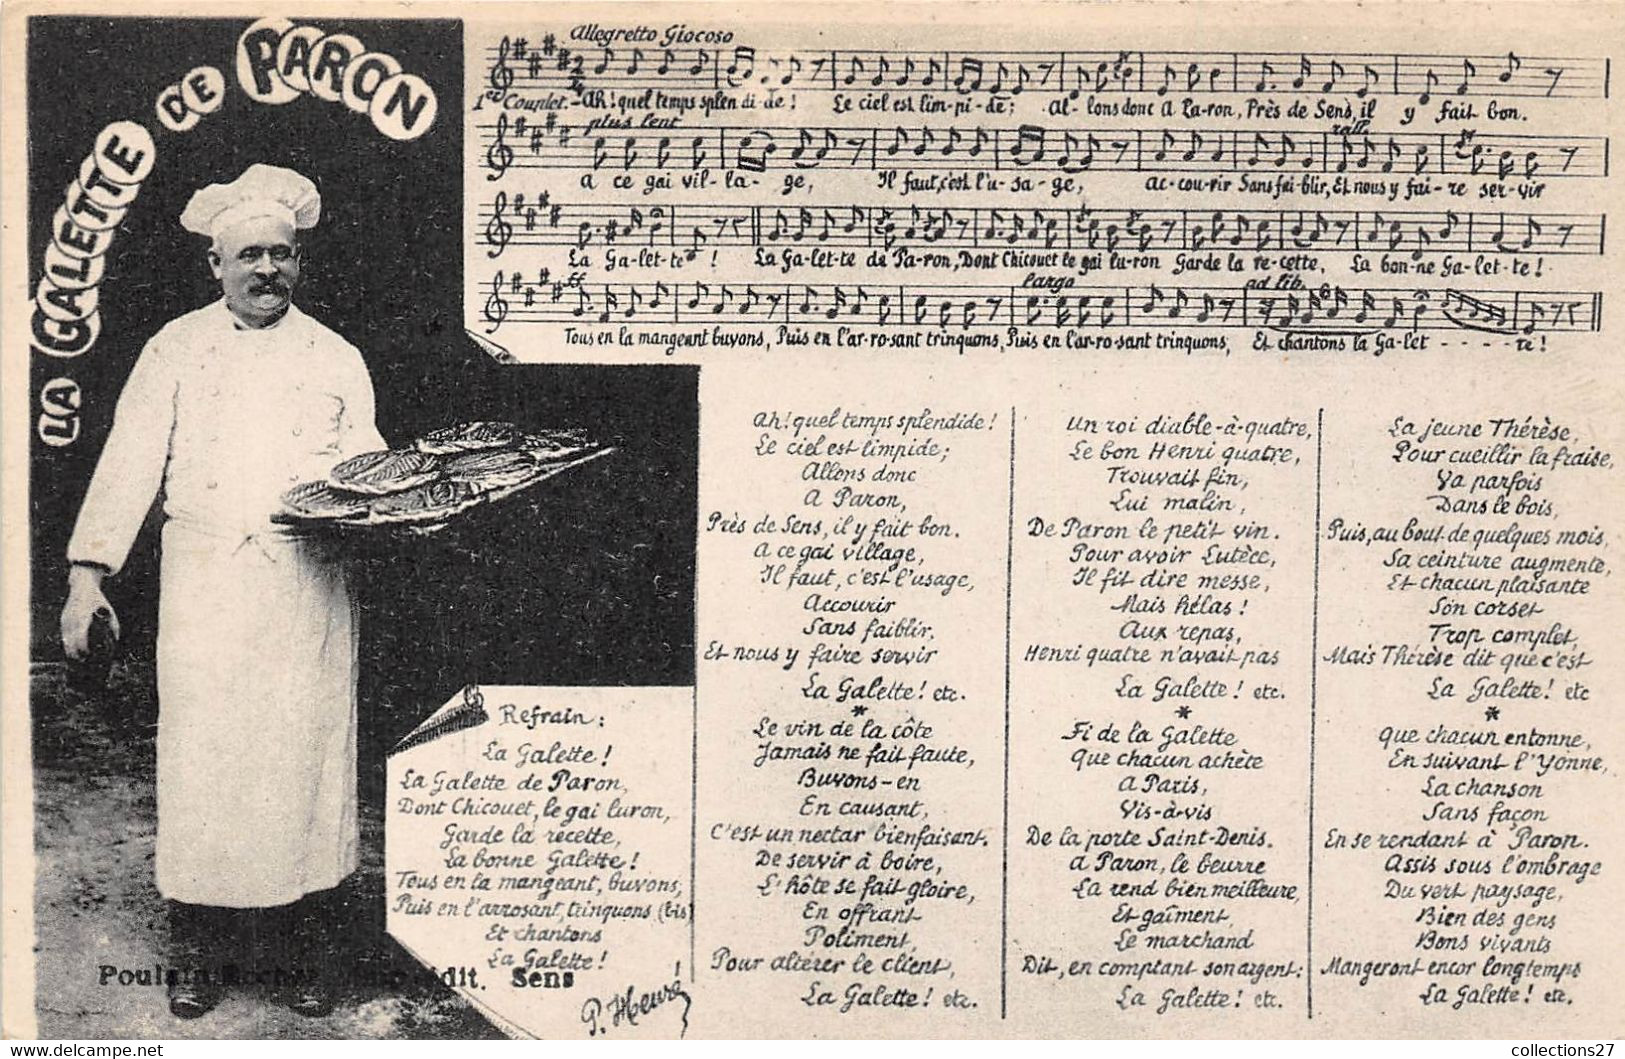 LA GALETTE DE PARON
Allegretto Giocoso
1er Couplet. - Ah! quel temps splen di-de! Le ciel est lim-pi-de; al-lons donc A Pa-ron, Près de Sens, il y fait bon.
plus lent
rall.
a ce gai vil-la-ge, Il faut, c'est l'u-sa-ge, ac-cou-rir Sans fai-blir, Et nous y fai-re ser-vir
La Ga-let-te! La Ga-let-te de Pa-ron, Dont Chicouet le gai lu-ron Garde la re-cette, La bon-ne Ga-let-te!
ff
Largo
ad lib.
Tous en la mangeant buvons, Puis en l'ar-ro-sant trinquons, Puis en l'ar-ro-sant trinquons, Et chantons la Ga-let - - - - te!
Refrain:
La Galette!
La Galette de Paron,
Dont Chicouet, le gai luron,
Garde la recette,
La bonne Galette!
Tous en la mangeant, buvons,
Puis en l'arrosant, trinquons (bis)
Et chantons
La Galette!
P. Heuré
Poulain Edit. Sens
Ah! quel temps splendide!
Le ciel est limpide;
Allons donc
A Paron,
Près de Sens, il y fait bon.
A ce gai village,
Il faut, c'est l'usage,
Accourir
Sans faiblir,
Et nous y faire servir
La Galette! etc.
*
Le vin de la côte
Jamais ne fait faute,
Buvons-en
En causant,
C'est un nectar bienfaisant.
De servir à boire,
L'hôte se fait gloire,
En offrant
Poliment,
Pour altérer le client,
La Galette! etc.
Un roi diable-à-quatre,
Le bon Henri quatre,
Trouvait fin,
Lui malin,
De Paron le petit vin.
Pour avoir Lutèce,
Il fit dire messe,
Mais hélas!
Aux repas,
Henri quatre n'avait pas
La Galette! etc.
*
Fi de la Galette
Que chacun achète
A Paris,
Vis-à-vis
De la porte Saint-Denis.
A Paron, le beurre
La rend bien meilleure,
Et gaîment,
Le marchand
Dit, en comptant son argent:
La Galette! etc.
La jeune Thérèse,
Pour cueillir la fraise,
Va parfois
Dans le bois,
Puis, au bout de quelques mois,
Sa ceinture augmente,
Et chacun plaisante
Son corset
Trop complet,
Mais Thérèse dit que c'est
La Galette! etc
*
Que chacun entonne,
En suivant l'Yonne,
La chanson
Sans façon
En se rendant à Paron.
Assis sous l'ombrage
Du vert paysage,
Bien des gens
Bons vivants
Mangeront encor longtemps
La Galette! etc.
collections27